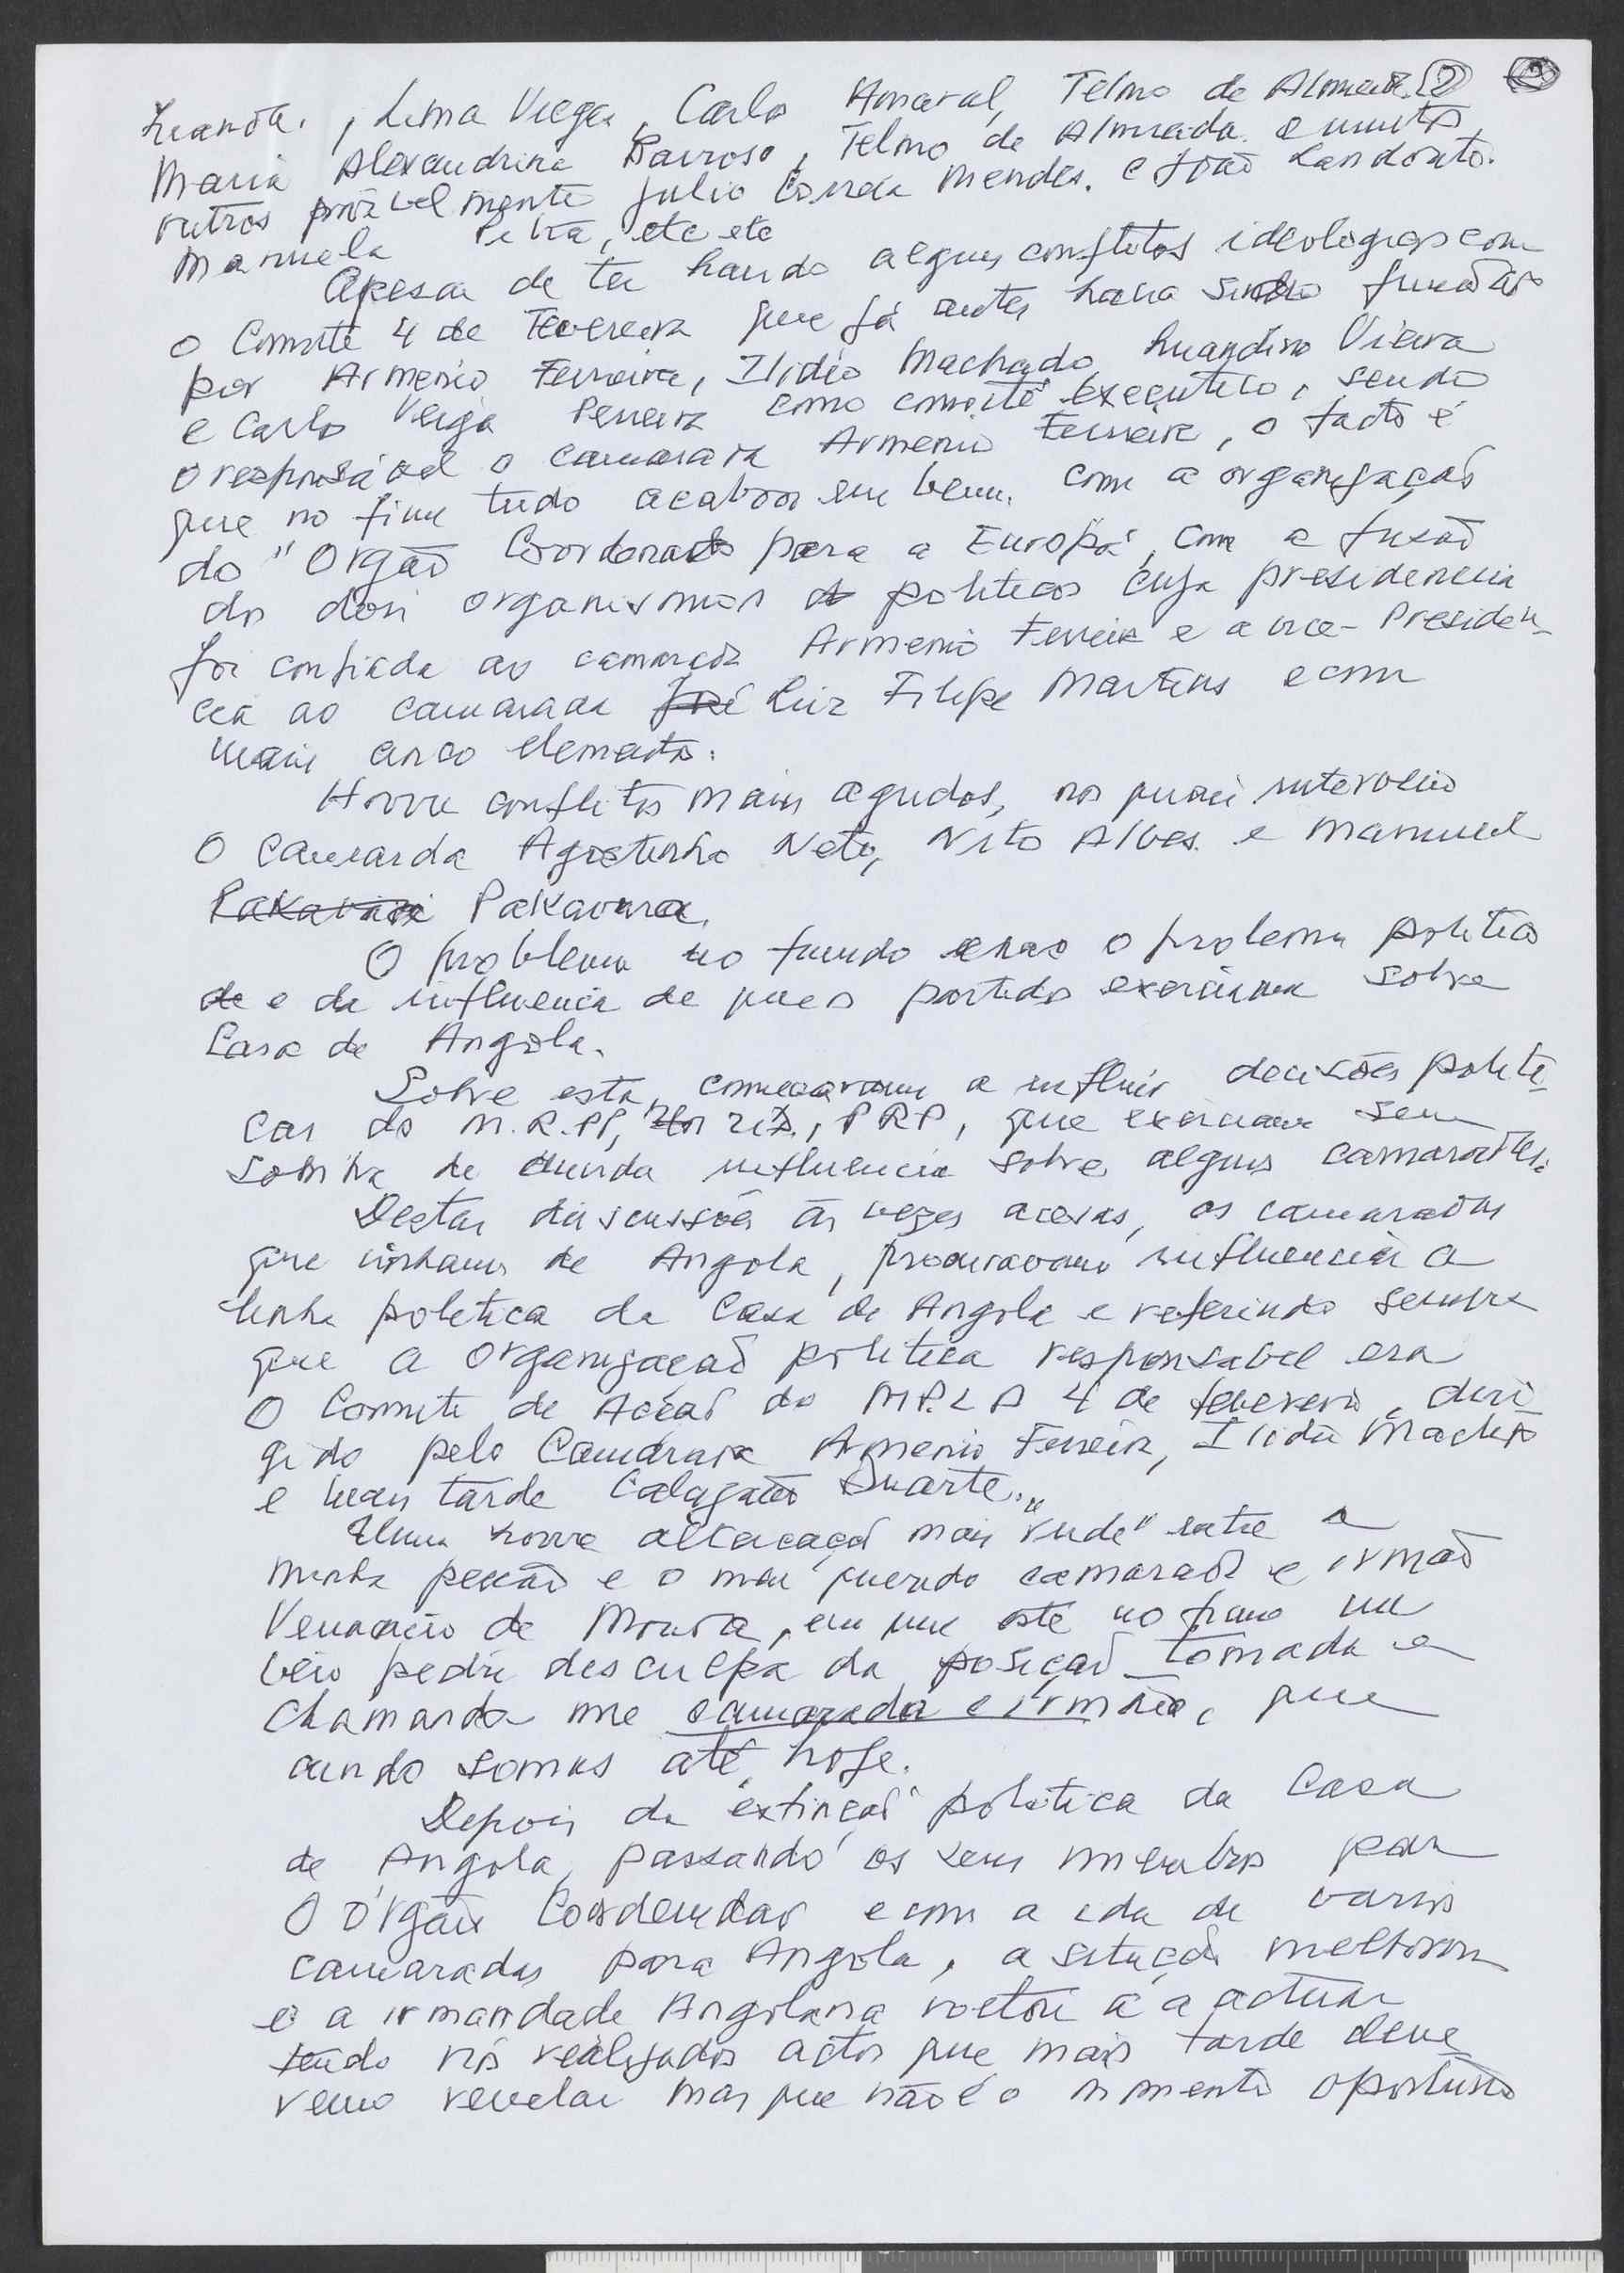 Luanda, Lima Viegas, Carlo Amaral, Telmo de Almeida 2
Maria Alexandrina Barroso, Telmo de Almeida e muitos
outros provàvelmente Julio Correia Mendes. e João
Manuela etc etc
Apesar de ter havido alguns conflitos ideologicos com
o Comité 4 de Fevereiro que já antes havia sido fundado
por Armenio Ferreira, Ilidio Machado, Luandino Vieira
e Carlo Veiga Pereira como comité executivo, sendo
o responsável o camarada Armenio Ferreira, o facto é
que no fim tudo acabou em bem. com a organização
do "Orgão Coordenador para a Europa", com a fusão
dos dois organismos politicos cuja presidencia
foi confiada ao camarada Armenio Ferreira e a vice-Presiden-
cia ao camarada José Luiz Filipe Martins e com
mais cinco elementos.
Houve conflitos mais agudos, nos quais interveio
o camarada Agostinho Neto, Nito Alves e Manuel
Pakavira.
O problema no fundo era o problema politico
de e da influencia de que os partidos exerciam sobre
Casa de Angola.
Sobre esta, começaram a influir decisões politi-
cas do M.R.PP, PRP, que exerciam sem
sombra de duvida influencia sobre alguns camaradas.
Destas discussões às vezes acesas, os camaradas
que vinham de Angola, procuravam influenciar a
linha politica da Casa de Angola e referindo sempre
que a organização politica responsavel era
o Comite de Acção do M.P.L.A 4 de fevereiro, diri
gido pelo Camarada Armenio Ferreira, Ilidio Machado
e mais tarde Duarte.
Uma houve altercação mais "rude" entre a
minha pessoa e o meu querido camarada e irmão
Venancio de Moura, em que este no fim me
veio pedir desculpa da posição tomada e
chamando me camarada e irmão, que
ainda somos até hoje.
Depois da "extinção" politica da Casa
de Angola, passando os seus membros para
o órgão Coordenador e com a ida de varios
camaradas para Angola, a situação melhorou
e a irmandade Angolana voltou a a actuar
tendo nós realizados actos que mais tarde deve
remos revelar mas que não é o momento oportuno